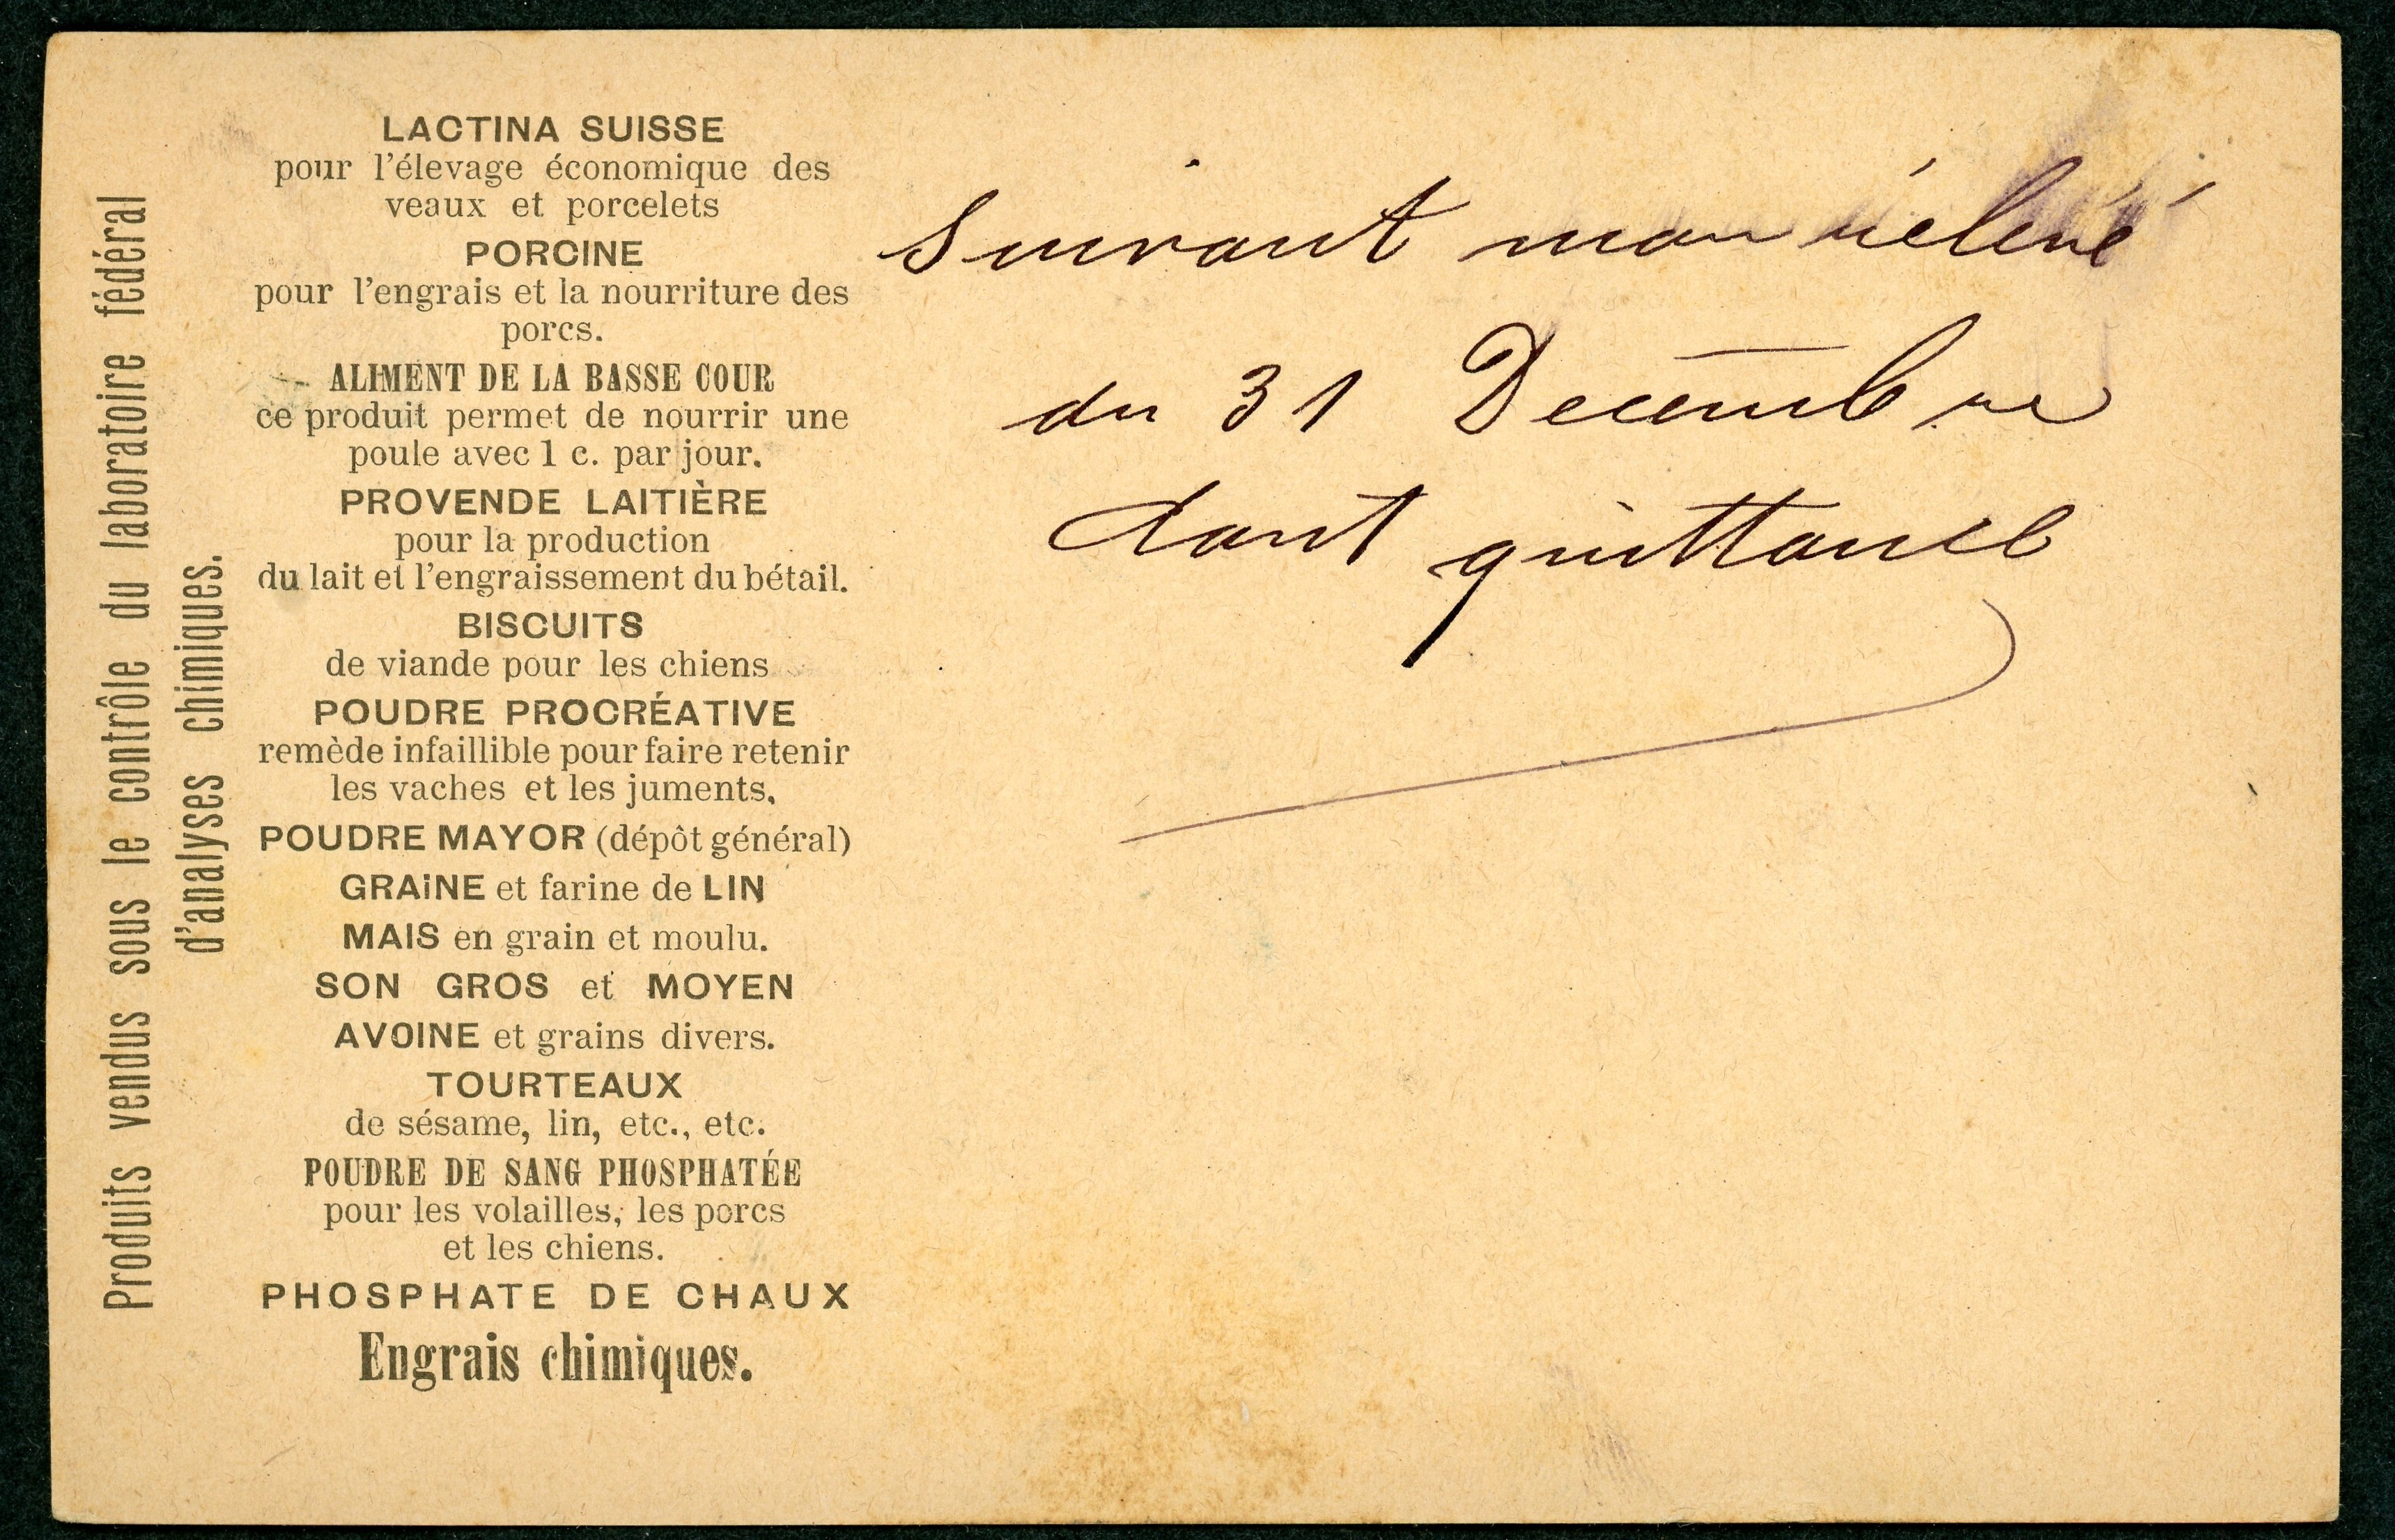 Produits vendus sous le contrôle du laboratoire fédéral
d'analyses chimiques.
LACTINA SUISSE
pour l'élevage économique des
veaux et porcelets
PORCINE
pour l'engrais et la nourriture des
porcs.
ALIMENT DE LA BASSE COUR
ce produit permet de nourrir une
poule avec 1 c. par jour.
PROVENDE LAITIÈRE
pour la production
du lait et l'engraissement du bétail.
BISCUITS
de viande pour les chiens
POUDRE PROCRÉATIVE
remède infaillible pour faire retenir
les vaches et les juments.
POUDRE MAYOR (dépôt général)
GRAINE et farine de LIN
MAIS en grain et moulu.
SON GROS et MOYEN
AVOINE et grains divers.
TOURTEAUX
de sésame, lin, etc., etc.
POUDRE DE SANG PHOSPHATÉE
pour les volailles, les porcs
et les chiens.
PHOSPHATE DE CHAUX
Engrais chimiques.
Suivant mon rélevé
du 31 Decembre
dont quittance